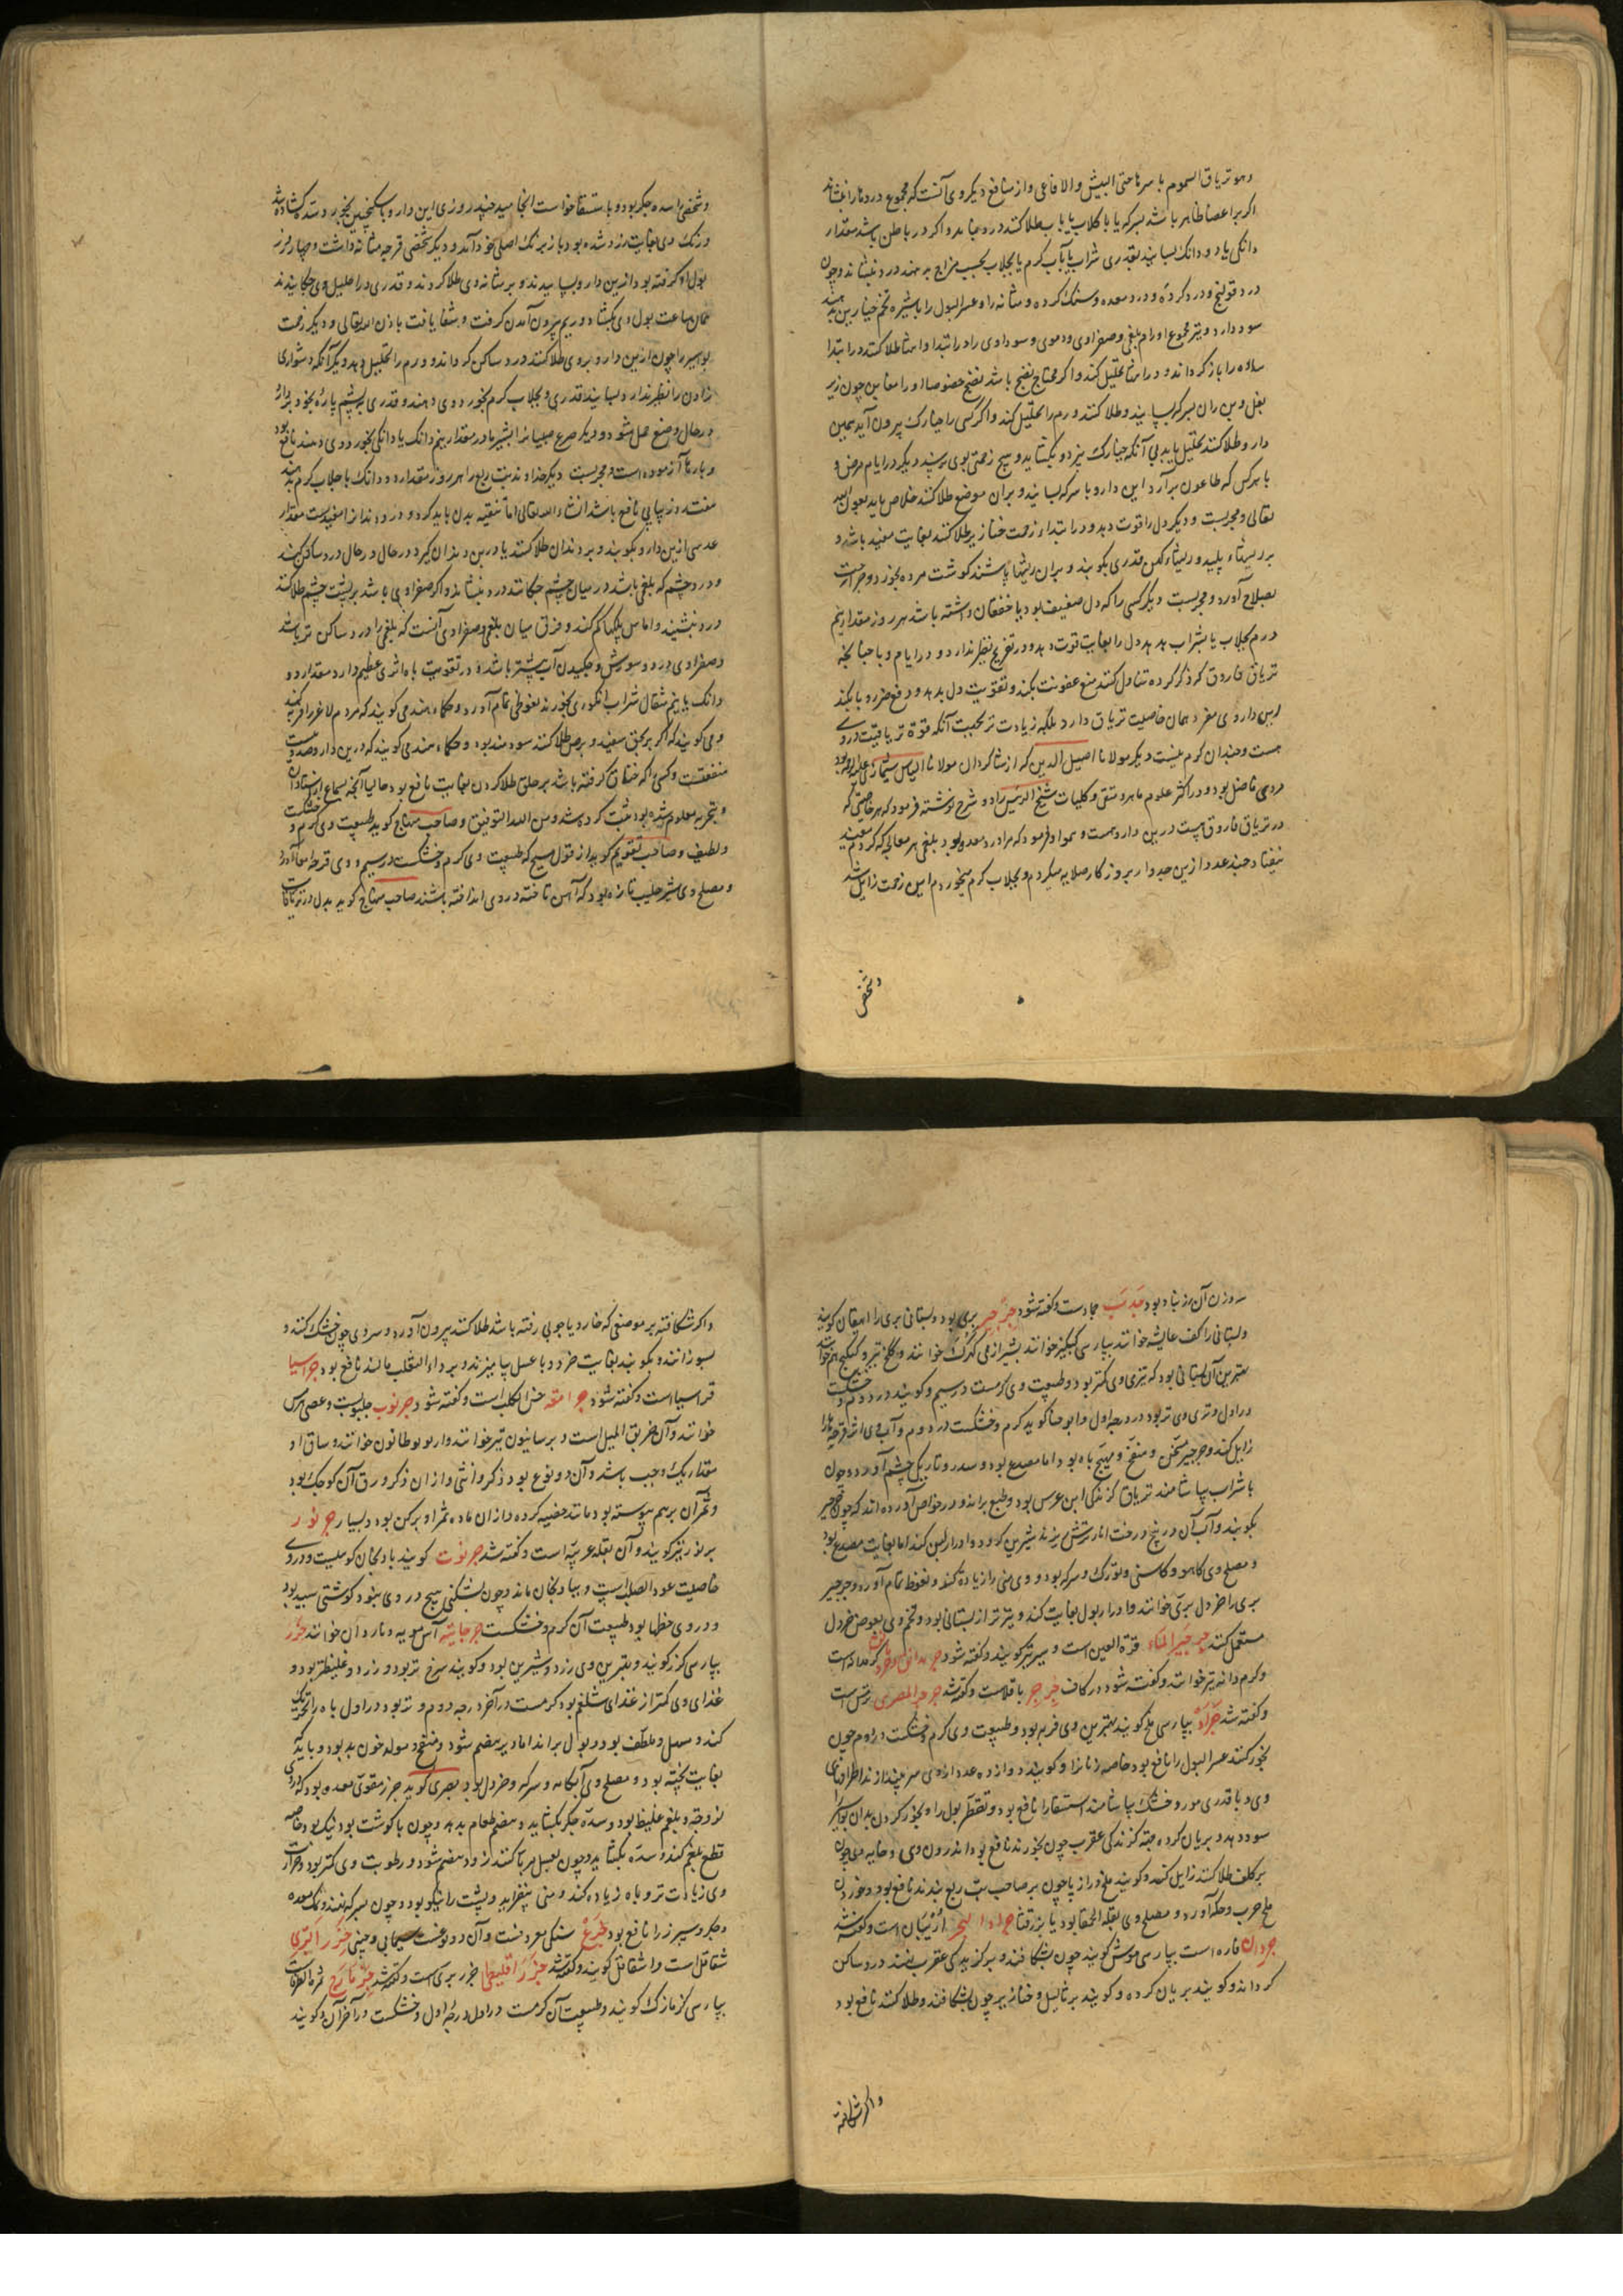 وهو تریاق السموم باسرها حتی البیش والافاعی و از منافع دیگر وی آنست که مجموع دردها را بنشاند
اگر بر اعضا ظاهر باشد بسرکه یا با کلاب یا بآب طلا کنند درد بنشاند و اگر در باطن باشد مقدار
دانکی یا دو دانک بسایند بقدری شراب یا بآب کرم یا بجلاب بحسب مزاج بدهند درد بنشاند و چون
درد قولنج و درد کرده و درد معده و سنک کرده و مثانه را و عسر البول را با شیره تخم خیارین بدهند
سود دارد و نیز مجموع اورام بلغمی و صفراوی و دموی و سوداوی را در ابتدا و انتها طلا کنند در ابتدا
ماده را باز کرداند و در انتها تحلیل کند و اگر محتاج نضج باشد نضج خصوصا اورام مغابن چون زیر
بغل و بن ران بسرکه بسایند و طلا کنند ورم را تحلیل کند و اگر کسی را خیارک بیرون آید همین
دارو طلا کنند تحلیل یابد بی آنکه خیارک بیزد و بکشاید و هیچ زحمتی بوی نرسد دیگر در ایام مرض و
با هر کس که طاعون برآرد این دارو با سرکه بسایند و بران موضع طلا کنند خلاص یابد بعون الله
تعالی و مجربست و دیگر دل را قوت دهد و در ابتداء زحمت خنازیر طلا کنند بغایت مفید باشد و
بر ریشهاء پلید و ریشهاء کهن قدری بکوبند و بران ریشها پاشند گوشت مرده بخورد و جراحت
بصلاح آورد و مجربست دیگر کسی را که دل ضعیف بود یا خفقان داشته باشد هر روز مقدار نیم
درم بجلاب یا بشراب بدهد دل را بغایت قوت دهد و در تفریح نظیر ندارد و در ایام وبا چنانچه
تریاق فاروق که ذکر کرده تناول کنند منع عفونت بکند و تقویت دل بدهد و دفع ضرر وبا بکند
پس داروی مفرد همان خاصیت تریاق دارد بلکه زیادت تر بجهت آنکه قوة تریاقیت در وی
هست و چندان کرم نیست دیگر مولانا اصیل الدین که از شاکردان مولانا الیاس شیرازی علیه الرحمه بود
مردی فاضل بود و در اکثر علوم ماهر و متقی و کلیات شیخ الرئیس را دو شرح نوشته فرمود که هر خاصیتی که
در تریاق فاروق هست درین دارو هست و هم او فرمود که مرا درد معده بود بلغمی هر معالجه که کردم مفید
نیفتاد چند عدد ازین جدوار بروز کار صلایه میکردم و بجلاب کرم میخوردم این زحمت زایل شد
و شخصی
و شخصی را سده جکر بود و با ستسقا خواست انجامید چند روزی این دارو با سکنجبین بخورد و سده کشاده شد
و رنک وی بغایت زرد شده بود باز برنک اصلی خود آمد و دیگر شخصی قرحه مثانه داشت و چهار روز
بول او گرفته بود ازین دارو بسایند و بر مثانه وی طلا کردند و قدری در احلیل وی چکانیدند
همان ساعت بول وی بکشاد و ریم بیرون آمدن گرفت و شفا یافت باذن الله تعالی و دیگر زحمت
بواسیر را چون ازین دارو بروی طلا کنند درد ساکن کرداند و ورم را تحلیل دهد و دیگر آنکه دشواری
زادن را نظیر ندارد بسایند قدری و بجلاب کرم بخورد وی دهند و قدری به پشم پاره بخود بردارد
در حال وضع حمل شود و دیگر صرع صبیان را بشیر مادر مقدار نیم دانک یا دانکی بخورد وی دهند نافع بود
و بارها آزموده است و مجربست دیگر خداوند تب ربع را هر روز مقدار دو دانک با جلاب کرم بدهند
هفت روز پیاپی نافع باشد انشاء الله تعالی اما تنقیه بدن باید کرد و درد دندان را مفیدست مقدار
عدسی ازین دارو بکوبند و بر دندان طلا کنند یا در بن دندان گیرد در حال و در حال درد ساکن کند
و درد چشم که بلغمی باشد در میان چشم چکانند درد بنشاند و اگر صفراوی باشد بر پشت چشم طلا کنند
درد بنشیند و اماس پلکها کم کند و فرق میان بلغمی و صفراوی آنست که بلغمی را درد ساکن تر باشد
و صفراوی درد و سوزش و چکیدن آب بیشتر باشد و در تقویت باه اثری عظیم دارد مقدار دو
دانک یا نیم مثقال شراب انکوری بخورند نعوظی تمام آورد و حکماء هند می کویند که مردم لاغر را فربه کند
و می کویند که اگر بر بهق سفید و برص طلا کنند سودمند بود و حکماء هند می کویند که درین دارو صد و بیست
منفعتست و کسی را که خناق گرفته باشد بر حلق طلا کردن بغایت نافع بود حالیا آنچه بسماع از استادان
و تجربه معلوم شده بود ثبت کرده شد و من الله التوفیق و صاحب منهاج کوید طبیعت وی کرم و خشکست
و لطیف و صاحب تقویم کوید از قول مسیح که طبیعت وی کرم و خشکست در سیم و وی قرحه امعا آورد
و مصلح وی شیر حلیب تازه بود که آهن تافته در وی انداخته باشند صاحب منهاج کوید بدل در تریاقات
سه وزن آن زرنباد بود جدسب جمادست و گفته شود جرجیر بری بود و بستانی بری را ایهقان کویند
و بستانی را کف عایشه خوانند بپارسی کیکیز خوانند بشیرازی کهزک خوانند و کلخ نیز و کیکیج هم خوانند
بهترین آن بستانی بود که تیزی وی کمتر بود و طبیعت وی کرمست در سیم و کویند در دوم و خشکست
در اول و تری وی تر بود در درجه اول و ابو حنا کوید کرم و خشکست در دوم و آب وی اثر قرحه ها را
زایل کند و جرجیر مسخن و منفخ و مهیج باه بود اما مصدع بود و سدر و تاریکی چشم آورد و چون
با شراب بیاشامند تریاق گزندگی ابن عرس بود و طبع براند و در خواص آورده اند که چون جرجیر
بکوبند و آب آن در بیخ درخت انار ترش ریزند شیرین گردد و ادرار لبن کند اما بغایت مصدع بود
و مصلح وی کاهو و کاسنی و تورک و سرکه بود و وی منی را زیاده کند و نعوظ تمام آورد و جرجیر
بری را خردل بری خوانند و ادرار بول بغایت کند و تیزتر از بستانی بود و تخم وی بعوض خردل
مستعمل کنند جرجیر الماء قرة العین است و سیر نیز کویند و گفته شود کرمدانه است
و کرم دانه نیز خوانند و گفته شود در کاف جرجر باقلاست و گفته شد جرجر المصری ترمس است
و گفته شد جراد بپارسی ملخ کویند بهترین وی فربه بود و طبیعت وی کرم و خشکست در دوم چون
بخور کنند عسر البول را نافع بود خاصه زنان را و کویند دوازده عدد از وی سر بیندازند و اطراف های
وی و با قدری مورد خشک بیاشامند استسقا را نافع بود و تقطر بول را و بخور کردن بدان بواسیر را
سود دهد و بریان کرده جهت گزندگی عقرب چون بخورند نافع بود اندرون وی و خایه وی چون
بر کلف طلا کنند زایل کند و کویند ملخ دراز پا چون بر صاحب تب ربع بندند نافع بود و خوردن
ملخ جرب و حکه آورد و مصلح وی بقلة الحمقا بود یا بزرقطونا جراد البحر اربیان است و گفته شد
جردان فاره است بپارسی موش کویند چون بشکافند و بر گزیدگی عقرب نهند درد ساکن
کرداند و کویند بریان کرده و کویند بر ثالیل و خنازیر چون بشکافند و طلا کنند نافع بود
و اگر شکافته
و اگر شکافته بر موضعی که خار دیا چوبی رفته باشد طلا کنند بیرون آورد و سر وی چون خشک کنند و
بسوزانند و بکوبند بغایت خرد و با عسل بیامیزند و بر داء الثعلب مالند نافع بود جراسیا
قراسیا است و گفته شود خس الکلب است و گفته شود جرنوب جلبوب است و عصی هرمس
خوانند و آن حربق المیل است و برسانیون نیز خوانند و اربوبوطانون خوانند و ساق او
مقدار یک وجب باشد و آن دو نوع بود ذکر و انثی و از ان ذکر ورق آن کوچک بود
و ثمر آن برهم پیوسته بود مانند خصیه کرده و از ان ماده ثمر او برکن بود و بسیار جرنوز
برنوز نیز کویند و آن بقله عربیه است و گفته شد جرنوت کویند بادنجان کوهیست و در وی
خاصیت عود الصلیب است و ببادنجان ماند و چون بشکنی هیچ در وی نبود گوشتی سپید بود
و در وی خطها بود طبیعت آن کرم و خشکست جرجانیه آس مویه و نار دان خوانند جزر
بپارسی کزر کویند و بهترین وی زرد و شیرین بود و کویند سرخ تر بود و زرد و غلیظتر بود و
غذای وی کمتر از غذای شلغم بود کرمست در آخر درجه دوم و تر بود در اول باه را تحریک
کند و مسهل و ملطف بود و بول براند اما دیر هضم شود و منفخ و مولد خون بد بود و باید که
بغایت پخته بود و مصلح وی آبکامه و سرکه و خردل بود بصری کوید جزر مقوی معده بود که در وی
لزوجت و بلغم غلیظ بود و سده جکر بکشاید و هضم طعام بدهد و چون با گوشت بود نیک بود خاصه
قطع بلغم کند و سده بکشاید و چون بعسل مربا کنند زود هضم شود و رطوبت وی کمتر بود و حرارت
وی زیادت تر و باه زیاده کند و منی بیفزاید و پشت را نیکو بود و چون بسرکه نهند و نمک معده
و جکر و سپرز را نافع بود جزع سنکی معروفست و آن دو نوعست یمانی و چینی جزر البری
شقاقل است و اشقاقل کویند و گفته شد جزر اقلیطی جزر بری است و گفته شد جز مازج ثمرة الطرفاست
بپارسی کزمازک کویند و طبیعت آن کرمست در اول درجه اول و خشکست در آخر آن و کویند